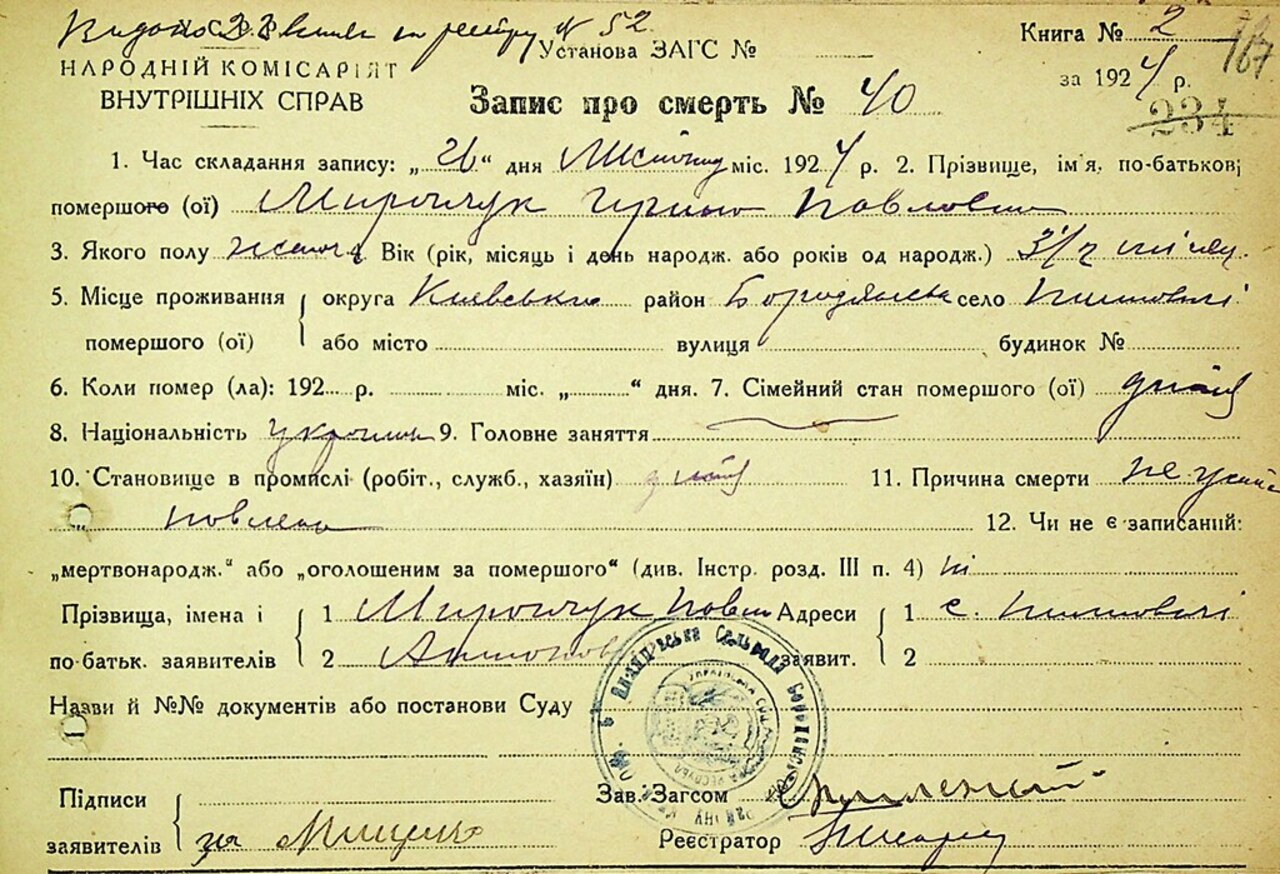 по реєстру № 52
Установа ЗАГС №
Книга № 2
НАРОДНІЙ КОМІСАРІЯТ
за 1924 р.
167
ВНУТРІШНІХ СПРАВ
Запис про смерть № 40
234
1. Час складання запису: „26“ дня міс. 1924 р. 2. Прізвище, ім'я, по-батькові
помершого (ої) Мирончук Павловна
3. Якого полу жіноч. Вік (рік, місяць і день народж. або років од народж.) 3 1/2
5. Місце проживання округа Київська район Бородянськ село
помершого (ої) або місто вулиця будинок №
6. Коли помер (ла): 192 р. міс. „ “ дня. 7. Сімейний стан помершого (ої)
8. Національність україн 9. Головне заняття
10. Становище в промислі (робіт., служб., хазяїн) 11. Причина смерти не уста
новлено
12. Чи не є записаний:
„мертвонародж.“ або „оголошеним за помершого“ (див. Інстр. розд. III п. 4) ні
Прізвища, імена і 1 Мирончук Павло Адреси 1 с.
по батьк. заявителів 2 Антонов заявит. 2
Назви й №№ документів або постанови Суду
Підписи
Зав. Загсом
заявителів за Мищенко
Реєстратор